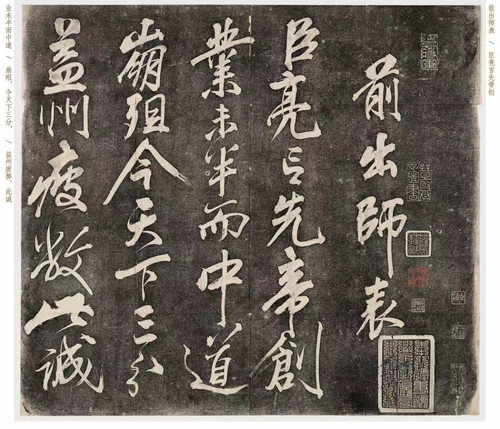 前出师表 / 臣亮言先帝创
前出師表
臣亮言先帝創
業未半而中道
崩殂今天下三分
益州疲敝此誠
业未半而中道 / 崩殂。今天下三分， / 益州疲弊，此诚